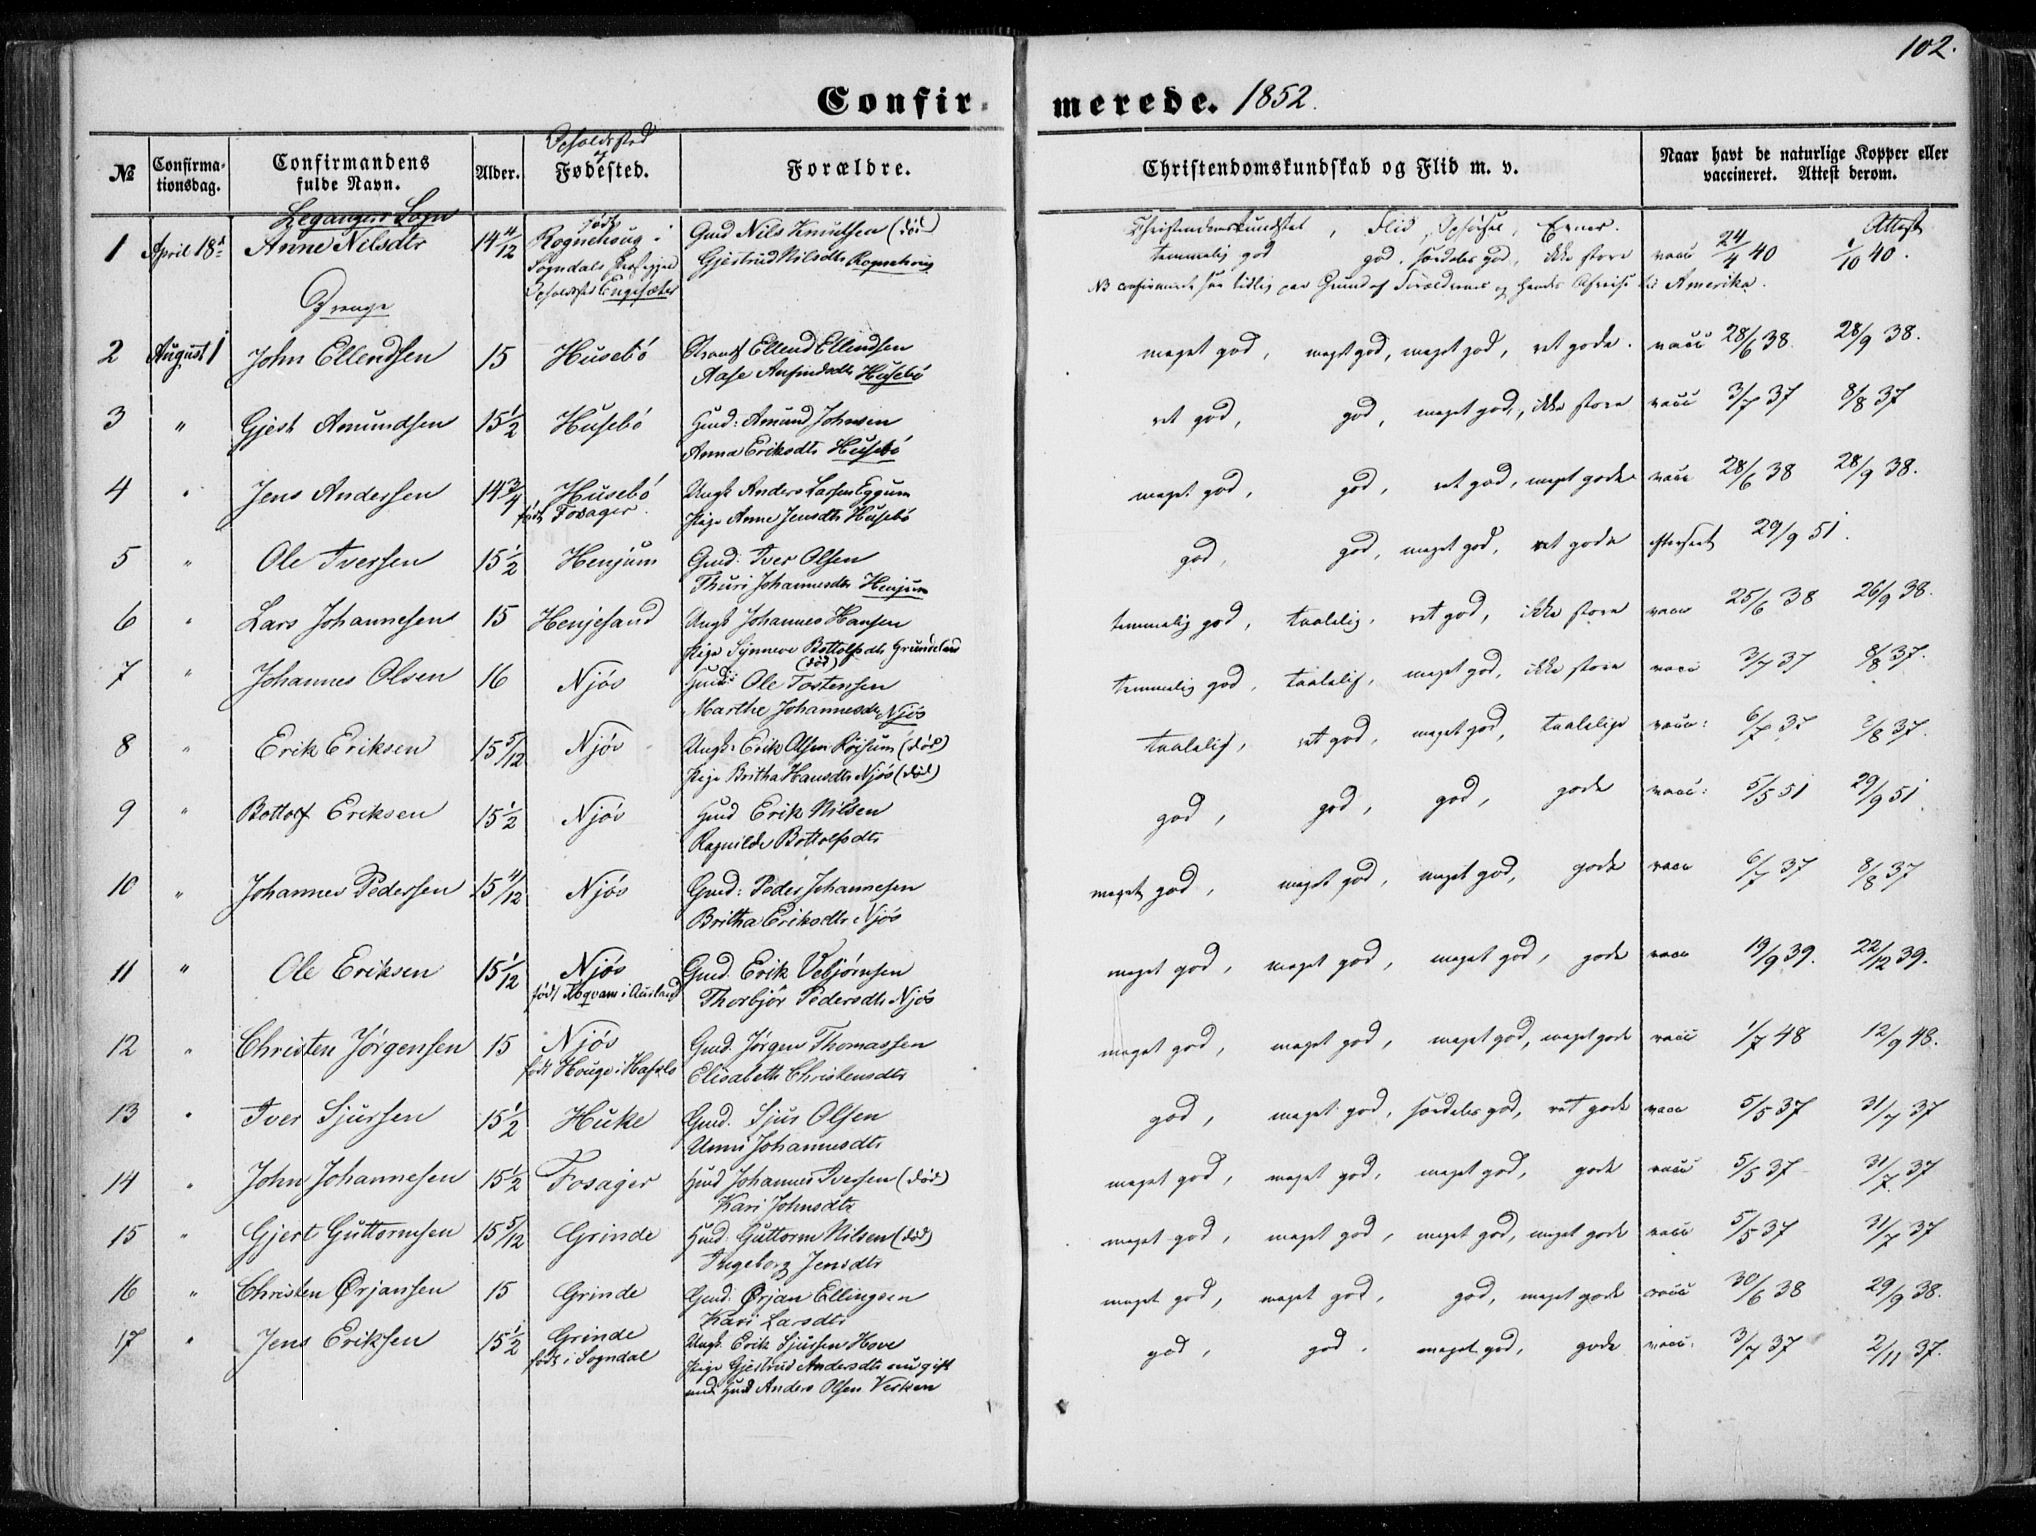 102.
Confirmerede. 1852.
№ Confirmationsdag. Confirmandens fulde Navn. Alder. Opholdssted og Fødested. Forældre. Christendomskundskab og Flid m. v. Naar havt de naturlige Kopper eller vaccineret. Attest derom.
Leganger Sogn
Christendomskundskab, Flid, Opførsel, Evner. Attest
1 April 18de Anne Nilsdtr 14 4/12 født Rognehoug i Sogndals Præstegjeld Opholdssted Engesæter Gmd Nils Knudsen (død) Gjertrud Nilsdtr Rognehoug temmelig god god, særdeles god, ikke store vacc 24/4 40 1/10 40.
NB confirmeret saa tidlig paa Grund af Forældrenes og hendes Afreise til Amerika.
Drenge
2 August 1 John Ellendsen 15 Husebö Strandf Ellend Ellendsen Aase Anfindsdtr Husebö meget god, meget god, meget god, ret gode. vacc 28/6 38. 28/9 38.
3 " Gjest Amundsen 15 1/2 Husebö Huusmd: Amund Johnsen Anna Eriksdtr Husebö ret god, god, meget god, ikke store vacc 3/7 37 8/8 37
4 " Jens Andersen 14 3/4 Husebö født Fosager. Ungk Anders Larsen Eggum Pige Anne Jensdtr Husebö meget god, god, ret god, meget gode vacc 28/6 38 28/9 38.
5 " Ole Iversen 15 1/2 Henjum Gmd: Iver Olsen Thuri Johannesdtr Henjum god, god, meget god, ret gode efterseet 29/9 51.
6 " Lars Johannesen 15 Henjesand Ungk Johannes Hansen Pige Synneve Bottolfsdtr Grundeland temmelig god, taalelig, ret god, ikke store vacc 25/6 38 26/9 38.
7 " Johannes Olsen 16 Njøs (død) Huusmd: Ole Tostensen Marthe Johannesdtr Njøs temmelig god, taalelig, meget god, ikke store vacc 3/7 37 8/8 37.
8 " Erik Eriksen 15 5/12 Njøs Ungk: Erik Olsen Röisum (död) Pige Britha Hansdtr Njøs (död) taalelig, ret god, meget god, taalelige vacc: 6/7 37 8/8 37.
9 " Bottolf Eriksen 15 1/2 Njøs Huusmd Erik Nilsen Ragnilde Bottolfsdtr god, god, god, gode vacc: 5/5 51 29/9 51.
10 " Johannes Pedersen 15 11/12 Njøs Gmd: Peder Johannesen Britha Eriksdtr Njøs meget god, meget god, meget god, gode vacc 6/7 37 8/8 37
11 " Ole Eriksen 15 1/12 Njøs født i Aurland Gmd. Erik Vebjørnsen Thorbjør Pedersdtr Njøs meget god, meget god, meget god, gode vacc 19/9 39. 22/12 39.
12 " Christen Jörgensen 15 Njøs født Houge i Hafslo Gmd. Jørgen Thomassen Elisabeth Christensdtr meget god, meget god, meget god, meget gode vacc 1/7 48 12/9 48.
13 " Iver Sjursen 15 1/2 Huke Gmd. Sjur Olsen Unni Johannesdtr god, meget god, særdeles god, ret gode vacc 5/5 37 31/7 37
14 " John Johannesen 15 1/2 Fosager Huusmd Johannes Iversen (død) Kari Johnsdtr meget god, meget god, meget god, gode vacc 5/5 37 31/7 37
15 " Gjert Guttormsen 15 5/12 Grinde Huusmd. Guttorm Nilsen (død) Ingeborg Jensdtr meget god, meget god, meget god, meget gode vacc 5/5 37 31/7 37
16 " Christen Ørjansen 15 Grinde Gmd: Ørjan Ellingsen Kari Larsdtr meget god, meget god, god, meget gode vacc 30/6 38 29/9 38.
17 " Jens Eriksen 15 1/2 Grinde født i Sogndal Ungk. Erik Sjursen Hove Pige Gjertrud Andersdtr nu gift med Huusmd Anders Olsen Verken god, god, meget god, gode vacc. 3/7 37 2/11 37.